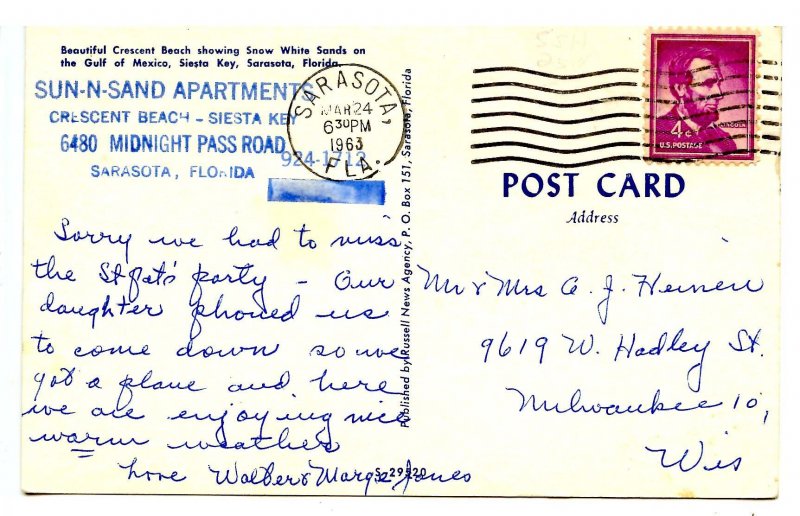 Beautiful Crescent Beach showing Snow White Sands on
the Gulf of Mexico, Siesta Key, Sarasota, Florida.
SUN-N-SAND APARTMENTS
CRESCENT BEACH - SIESTA KEY
6480 MIDNIGHT PASS ROAD
924-1712
SARASOTA, FLORIDA
SARASOTA,
MAR 24
630PM
1963
FLA.
Sorry we had to miss
the St Pat's party - Our
daughter phoned us
to come down so we
got a plane and here
we are enjoying nice
warm weather
Love Walter & Marge Jones
S-29520
Published by Russell News Agency, P. O. Box 151, Sarasota, Florida
LINCOLN
4¢
U.S. POSTAGE
POST CARD
Address
Mr & Mrs A. J. Heinen
9619 W. Hadley St.
Milwaukee 10,
Wis